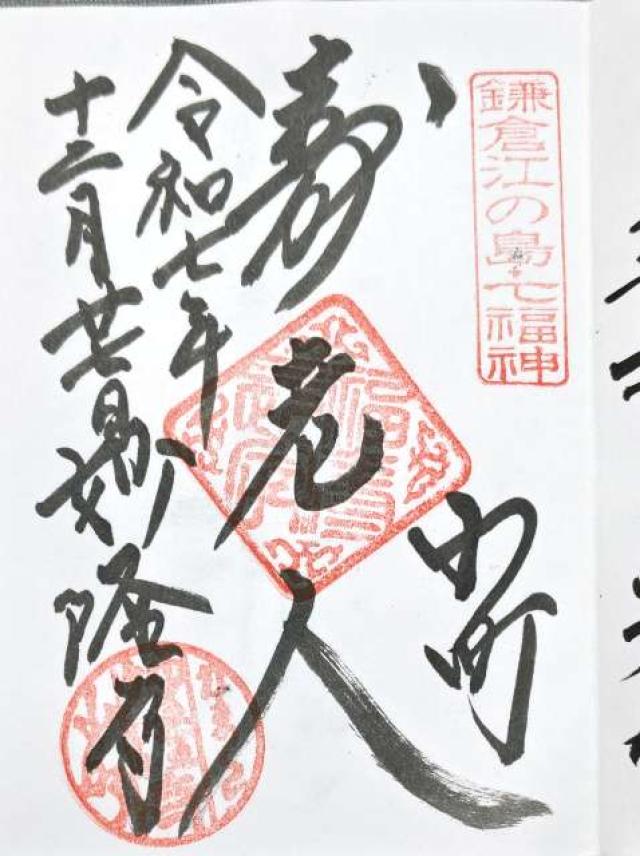 鎌倉江の島七福神
小町
寿老人
令和七年
十二月廿七日 妙隆寺